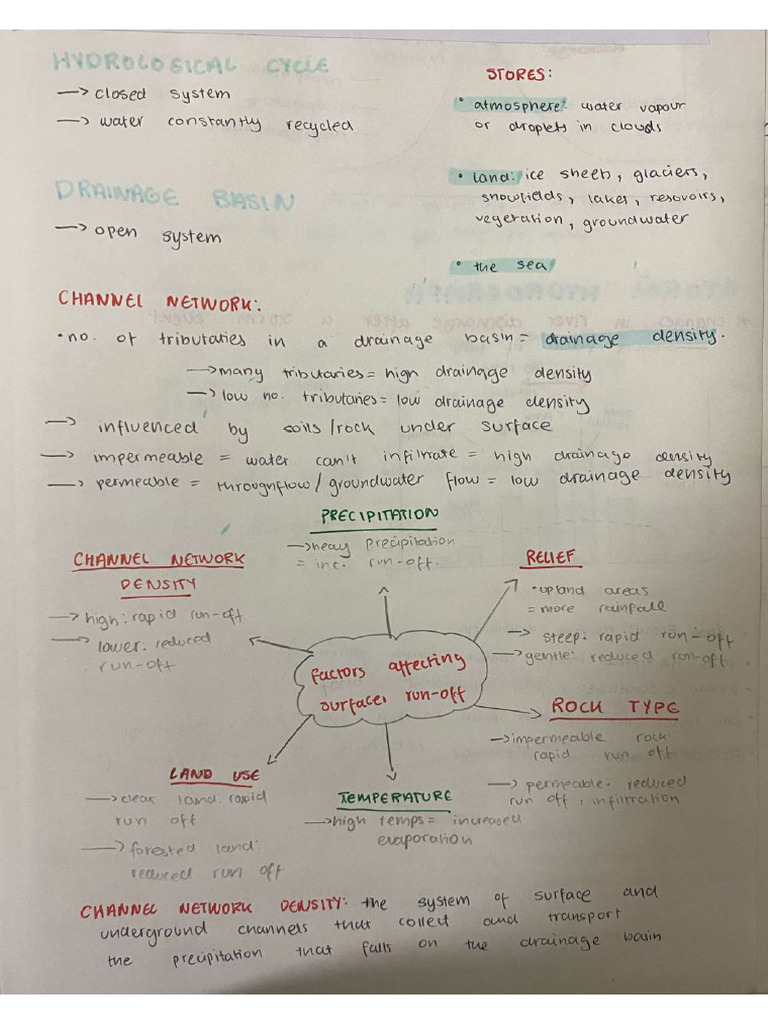 HYDROLOGICAL CYCLE
→ closed system
→ water constantly recycled
STORES:
• atmosphere: water vapour
or droplets in clouds
• land: ice sheets, glaciers,
snowfields, lakes, resovoirs,
vegetation, groundwater
• the sea
DRAINAGE BASIN
→ open system
CHANNEL NETWORK:
• no. of tributaries in a drainage basin = drainage density.
→ many tributaries = high drainage density
→ low no. tributaries = low drainage density
→ influenced by soils/rock under surface
→ impermeable = water can't infiltrate = high drainage density
→ permeable = throughflow/groundwater flow = low drainage density
PRECIPITATION
→ heavy precipitation
= inc. run-off.
CHANNEL NETWORK
DENSITY
→ high: rapid run-off
→ lower: reduced
run-off
RELIEF
• upland areas
= more rainfall
→ steep: rapid run-off
→ gentle: reduced run-off
factors affecting
surface run-off
ROCK TYPE
→ impermeable rock:
rapid run off
→ permeable: reduced
run off, infiltration
LAND USE
→ clear land: rapid
run off
→ forested land:
reduced run off
TEMPERATURE
→ high temps = increased
evaporation
CHANNEL NETWORK DENSITY: the system of surface and
underground channels that collect and transport
the precipitation that falls on the drainage basin